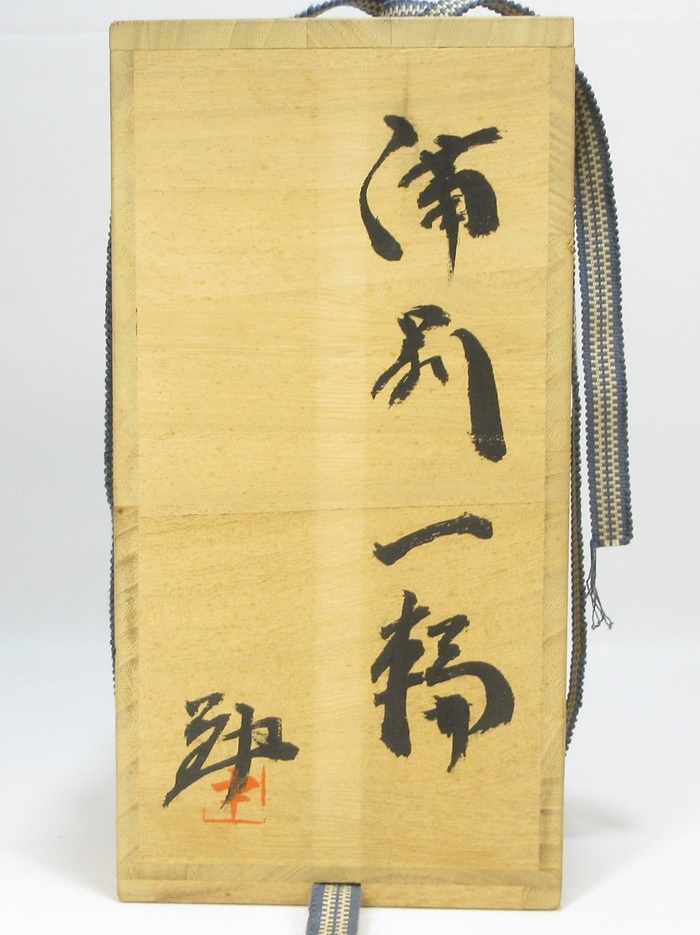 備前一輪